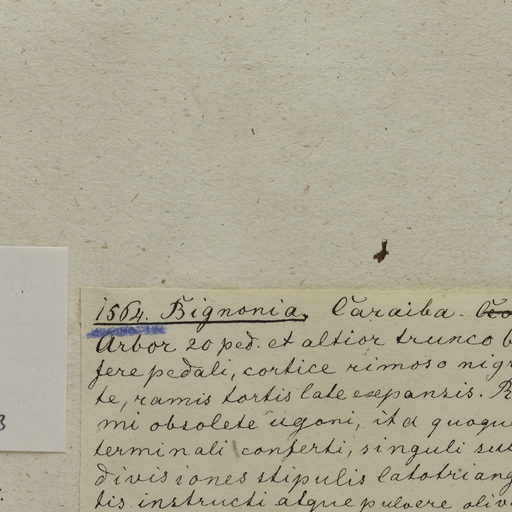 1564. Bignonia, Caraiba.
Arbor 20 ped. et altior trunco
fere pedali, cortice rimoso nigr
te, ramis tortis late expansis. R
mi obsolete ugoni, ita quoque
terminali conferti, singuli su
divisiones stipulis latotriang
tis instructi atque pulvere oliv
3